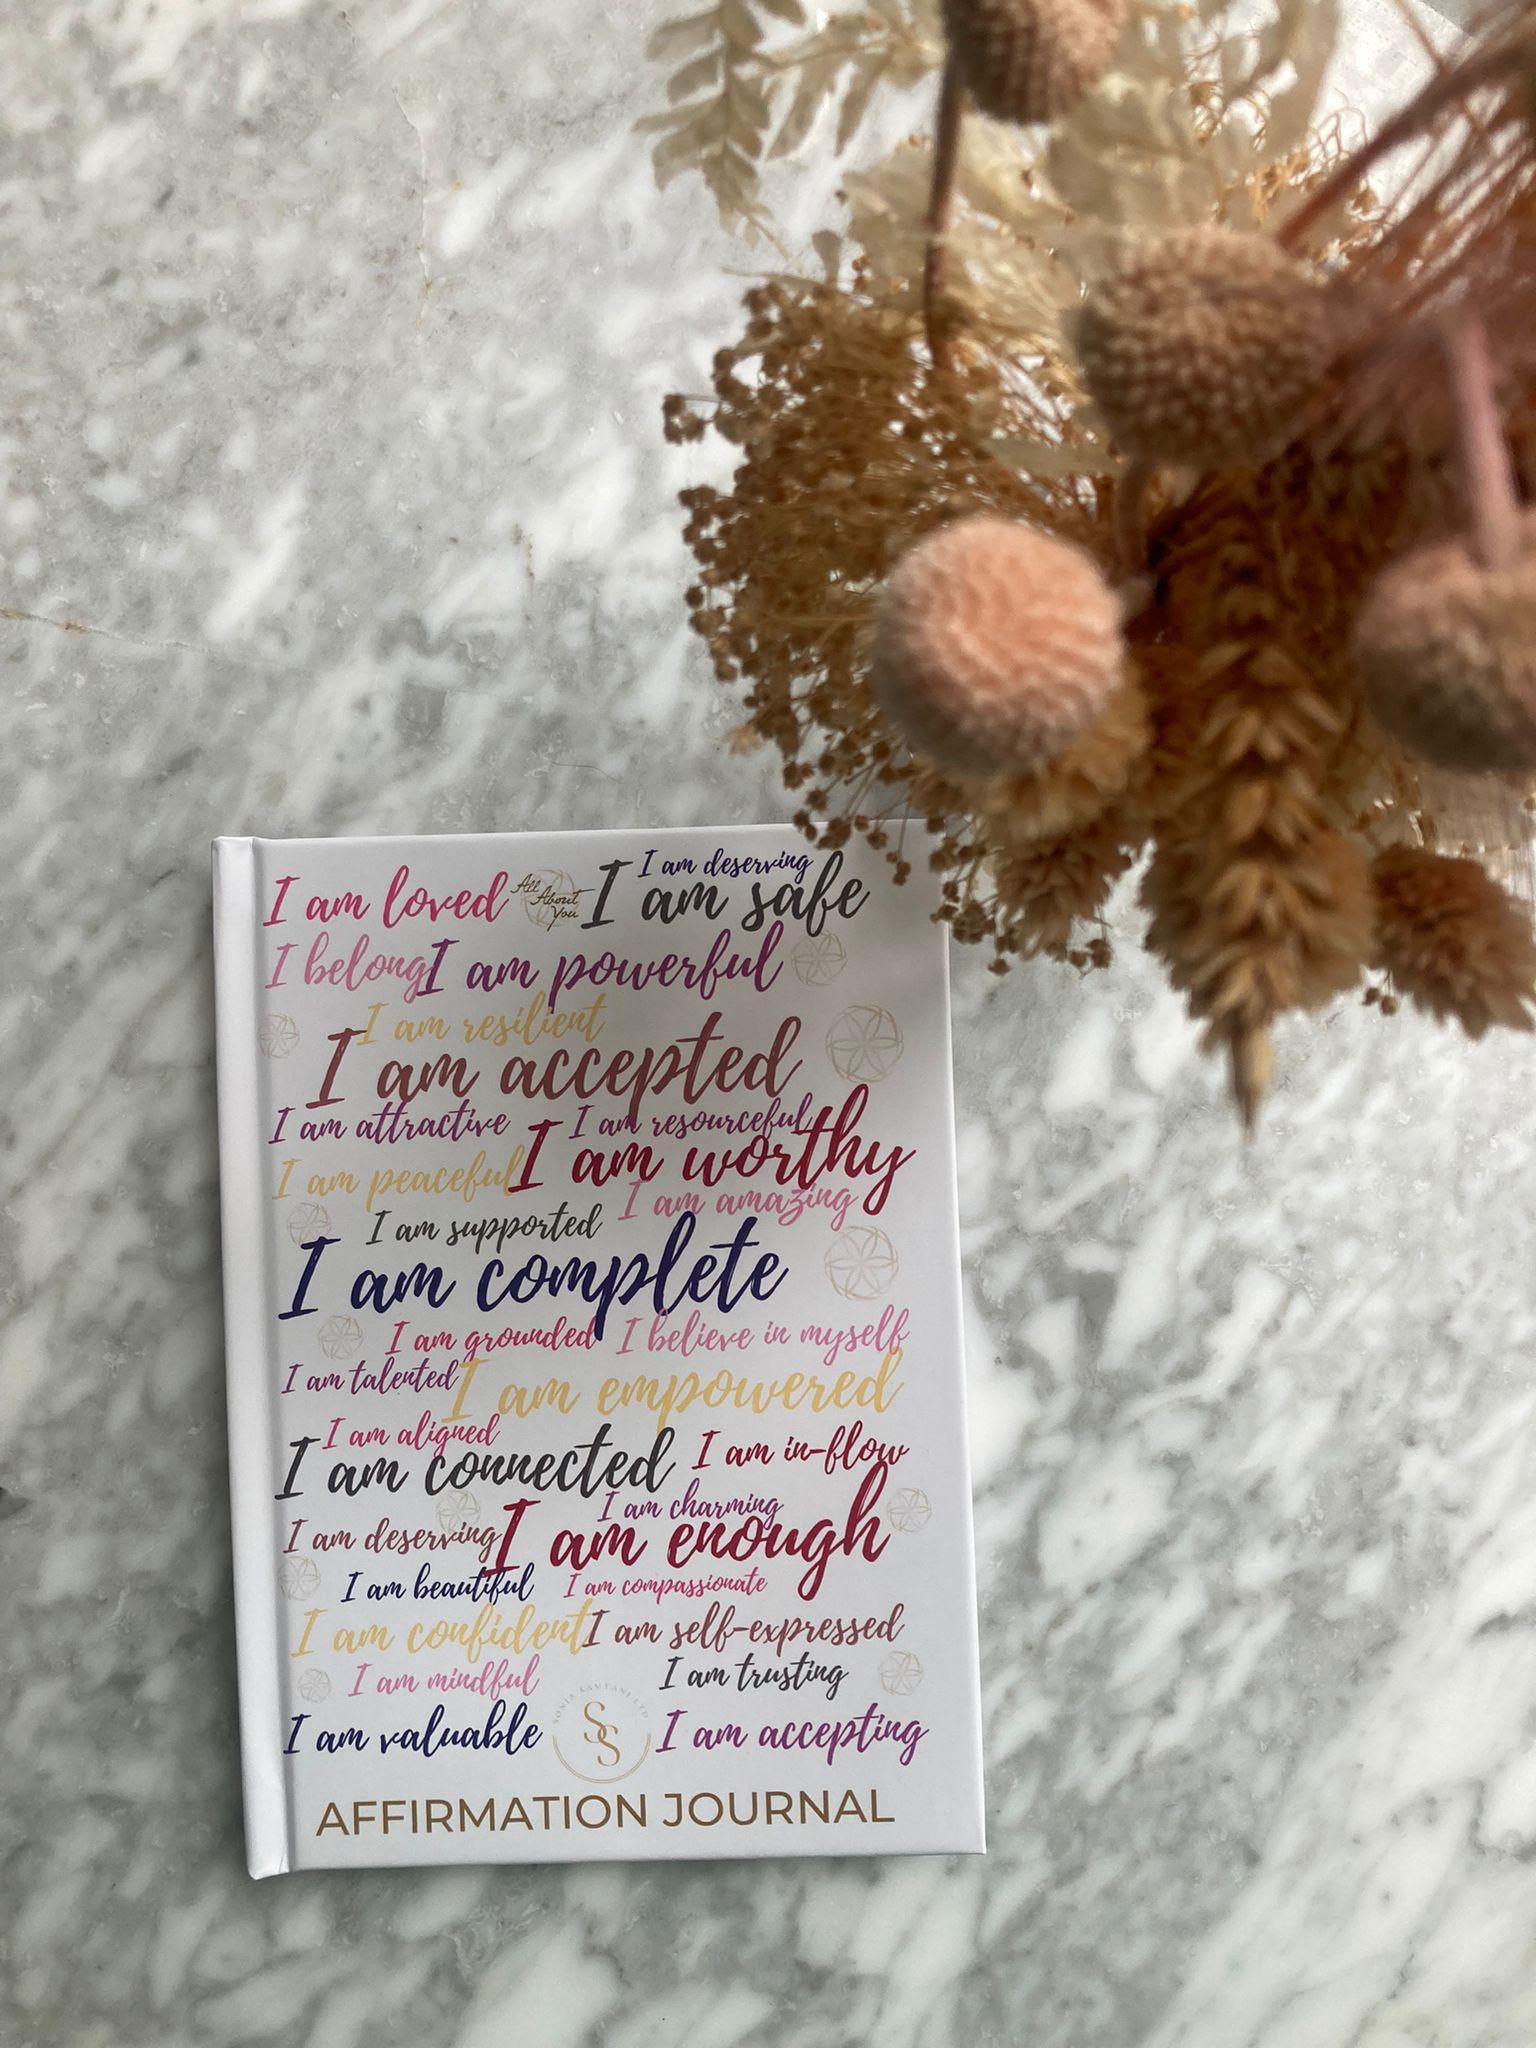 I am deserving
I am loved All About You I am safe
I belong I am powerful
I am resilient
I am accepted
I am attractive I am resourceful
I am peaceful I am worthy
I am amazing
I am supported
I am complete
I am grounded I believe in myself
I am talented I am empowered
I am aligned
I am connected I am in-flow
I am charming
I am deserving I am enough
I am beautiful I am compassionate
I am confident I am self-expressed
I am mindful I am trusting
I am valuable SS I am accepting
AFFIRMATION JOURNAL